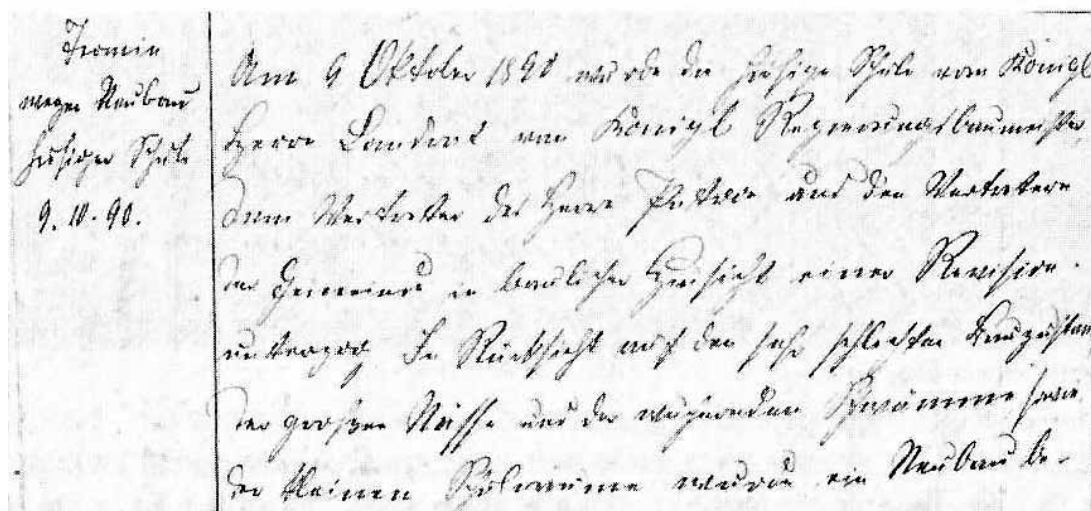 Termin
wegen Neubau
hiesiger Schule
9.10.90.
Am 9 Oktober 1890 wurde die hiesige Schule vom Königl
Herrn Landrat vom Königl Regierungsbaumeister,
dem Vertreter des Herrn Patron und den Vertretern
der Gemeinde in baulicher Hinsicht einer Revision
unterzogen In Rücksicht auf den sehr schlechten Bauzustan
der großen Nässe und der wuchernden Schwämme sowie
der kleinen Schulräume wurde ein Neubau be